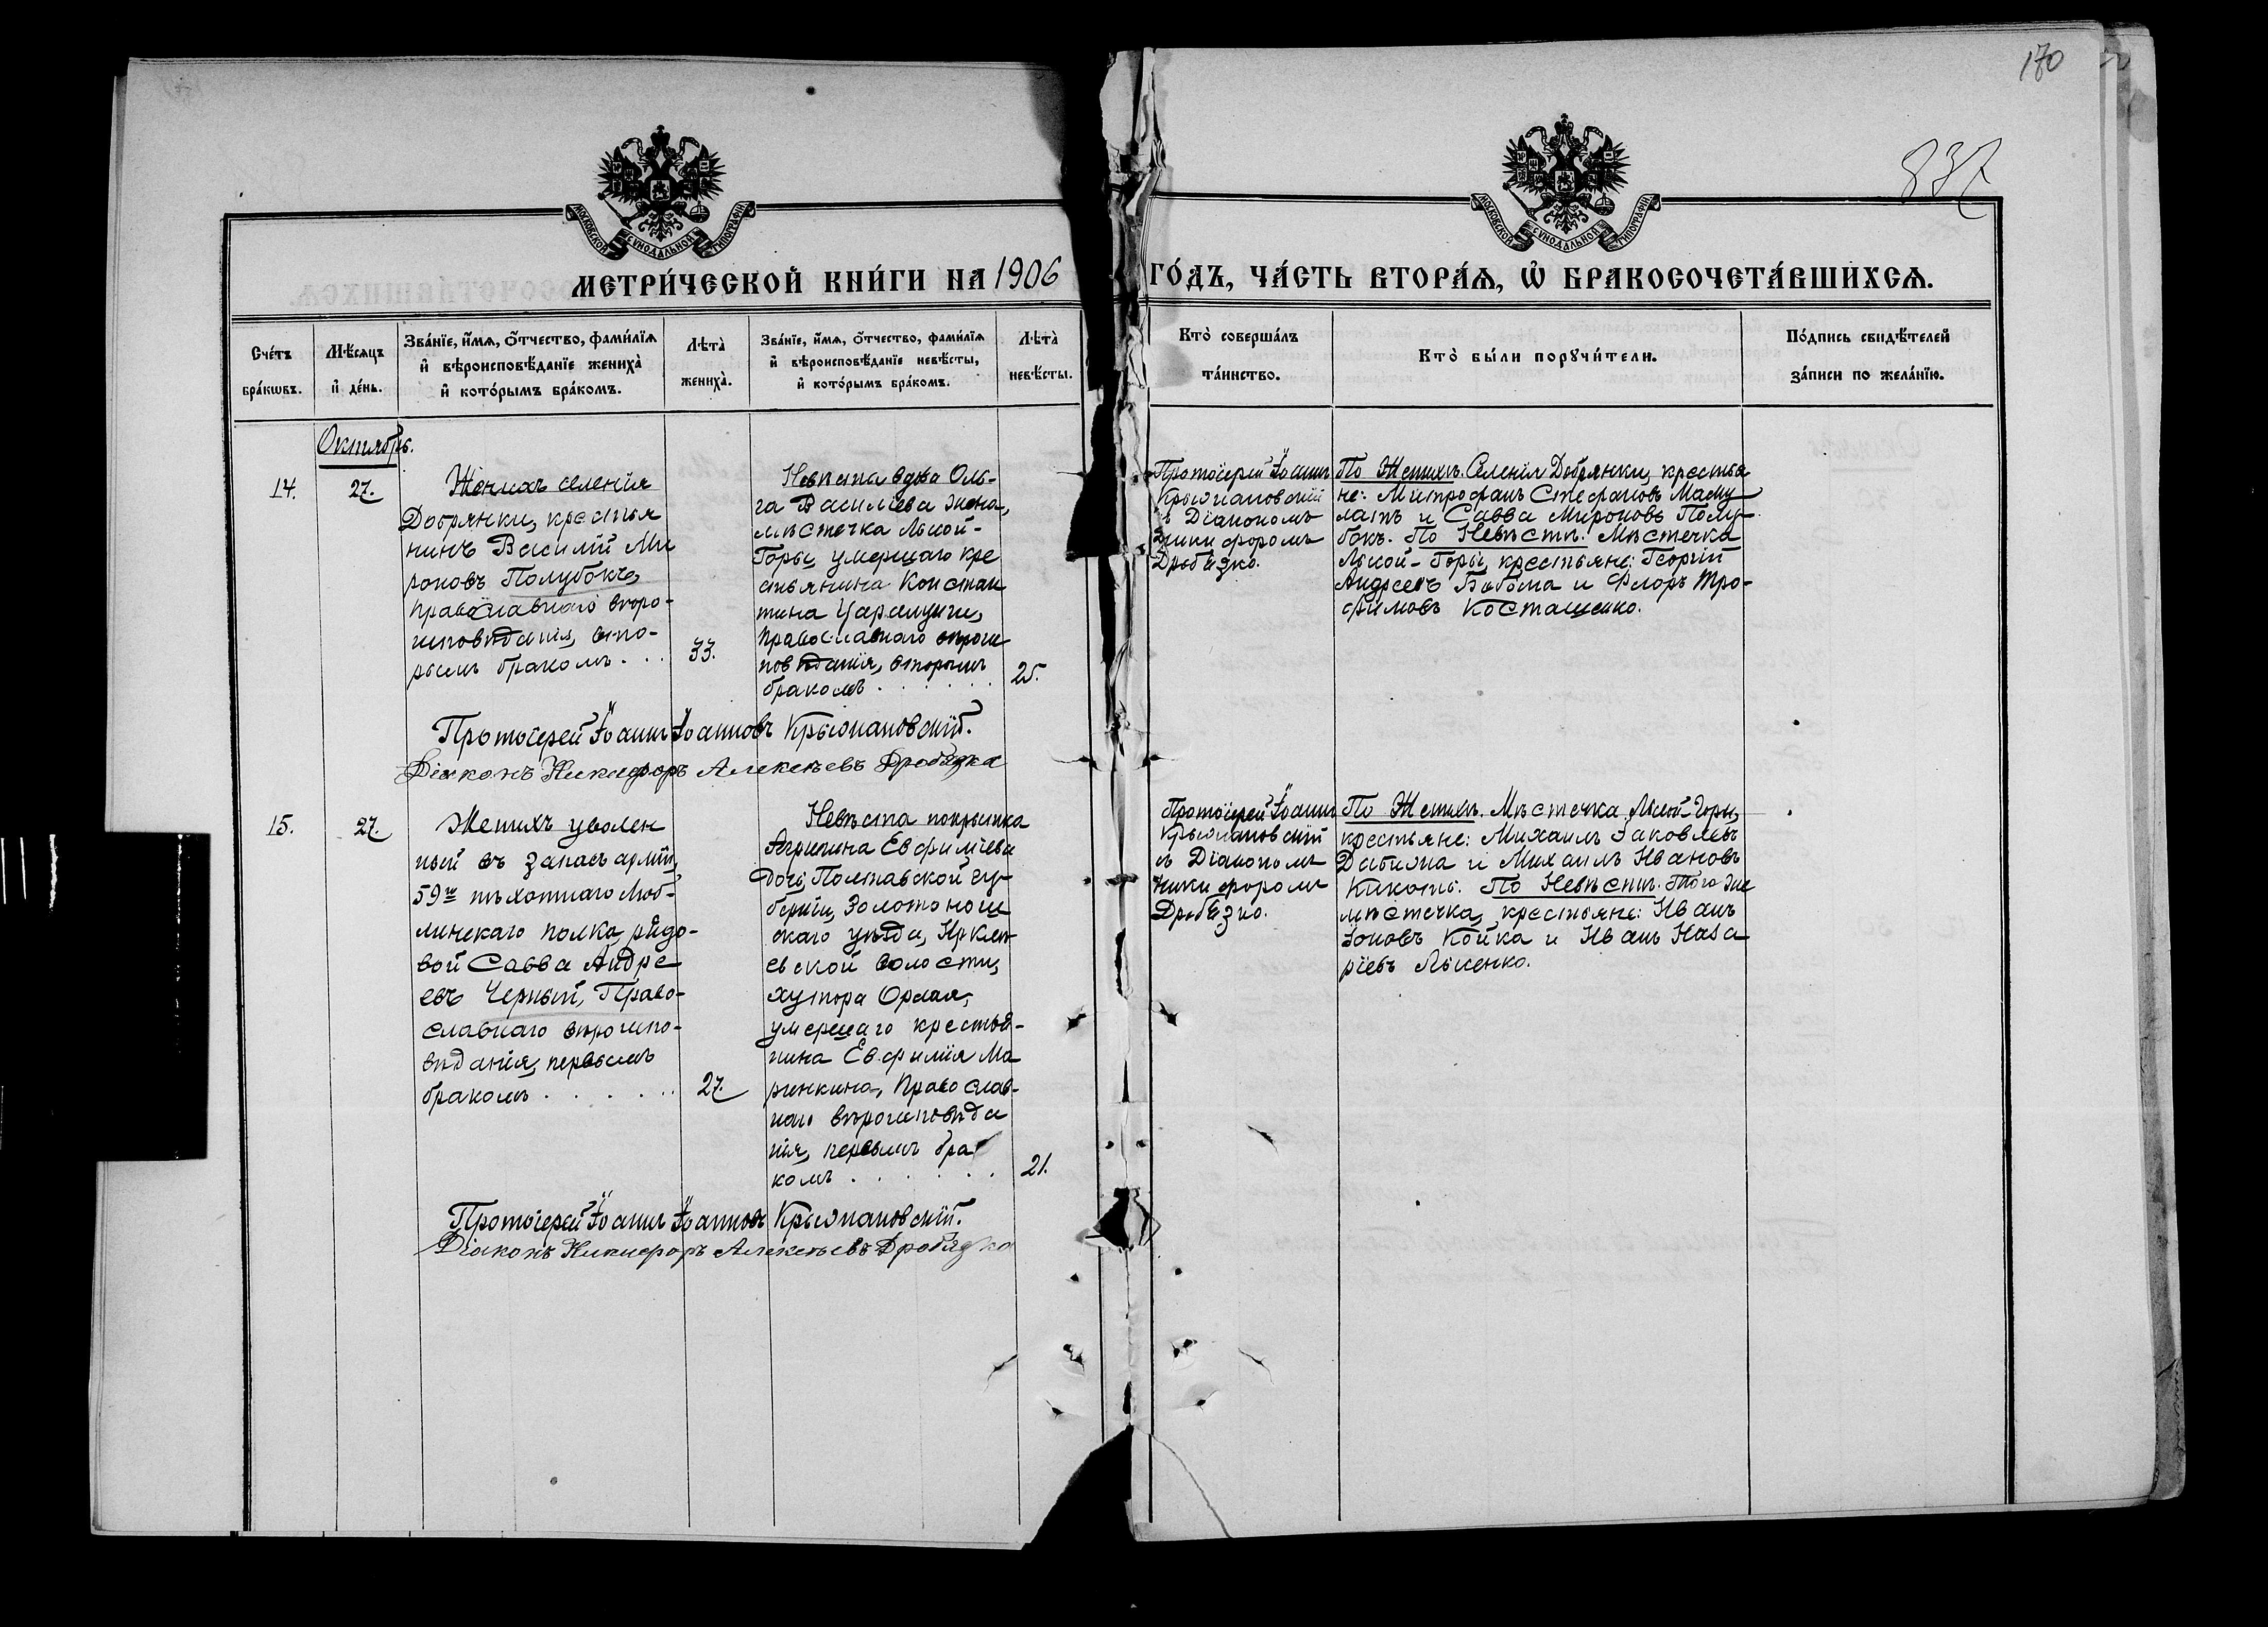 170
837
МОСКОВСКОЙ СѴНОДАЛЬНОЙ ТИПОГРАФІИ
МОСКОВСКОЙ СѴНОДАЛЬНОЙ ТИПОГРАФІИ
МЕТРИ́ЧЕСКОЙ КНИ́ГИ НА 1906
ГО́ДЪ, ЧА́СТЬ ВТОРА́Ѧ, Ѡ҆ БРАКОСОЧЕТА́ВШИХСѦ.
Сче́тъ
бра́кѡвъ.
Мѣ́сѧцъ
и҆ де́нь.
Зва́нїе, и҆́мѧ, ѻ҆́тчество, фами́лїѧ
и҆ вѣроисповѣ́данїе жениха̀
и҆ кото́рымъ бра́комъ.
Лѣта̀
жениха̀.
Зва́нїе, и҆́мѧ, ѻ҆́тчество, фами́лїѧ
и҆ вѣроисповѣ́данїе невѣ́сты,
и҆ кото́рымъ бра́комъ.
Лѣта̀
невѣ́сты.
Кто̀ соверша́лъ
та́инство.
Кто̀ бы́ли порꙋчи́тели.
По́дпись свидѣ́телей
за́писи по жела́нїю.
Октябрь.
14.
27.
Женихъ селенія
Добрянки, крестья
нинъ Василій Ми
роновъ Полубокъ,
православнаго вѣро-
исповѣданія, вто-
рымъ бракомъ...
33.
Невѣста вдова Оль-
га Василіева жена,
мѣстечка Лысой-
Горы, умершаго кре
стьянина Констан
тина
православнаго вѣроис
повѣданія, вторымъ
бракомъ......
25.
Протоіерей Іоаннъ
Крыжановскій
съ Діакономъ
Никифоромъ
Дробязко.
По Женихѣ. Селенія Добрянки, крестья
не: Митрофанъ Стефановъ Маму
латъ и Савва Мироновъ Полу-
бокъ. По Невѣстѣ. Мѣстечка
Лысой-Горы, крестьяне: Георгій
Андреевъ и Флоръ Тро-
фимовъ Косташенко.
Протоіерей Іоаннъ Іоанновъ Крыжановскій.
Діаконъ Никифоръ Алексѣевъ Дробязка
15.
27.
Женихъ уволен
ный въ запасъ арміи,
59го пѣхотнаго Люб-
линскаго полка рядо-
вой Савва Андре
евъ Черный, Право-
славнаго вѣроиспо-
вѣданія, первымъ
бракомъ......
27.
Невѣста покрытка
Агрипина Евфиміева
дочь, Полтавской гу-
берніи, Золотонош
скаго уѣзда, Ирклѣ-
евской волости,
хутора
умершаго крестья-
нина Евфимія Ма
ринкина, Православ-
наго вѣроисповѣда
нія, первымъ бра
комъ......
21.
Протоіерей Іоаннъ
Крыжановскій
съ Діакономъ
Никифоромъ
Дробязко.
По Женихѣ. Мѣстечка Лысой-Горы,
крестьяне: Михаилъ Іаковлевъ
и Михаилъ Ивановъ
Кикоть. По Невѣстѣ. Того же
мѣстечка, крестьяне: Иванъ
Іоновъ Койка и Иванъ Наза
ріевъ Лысенко.
Протоіерей Іоаннъ Іоанновъ Крыжановскій.
Діаконъ Никифоръ Алексѣевъ Дробязко